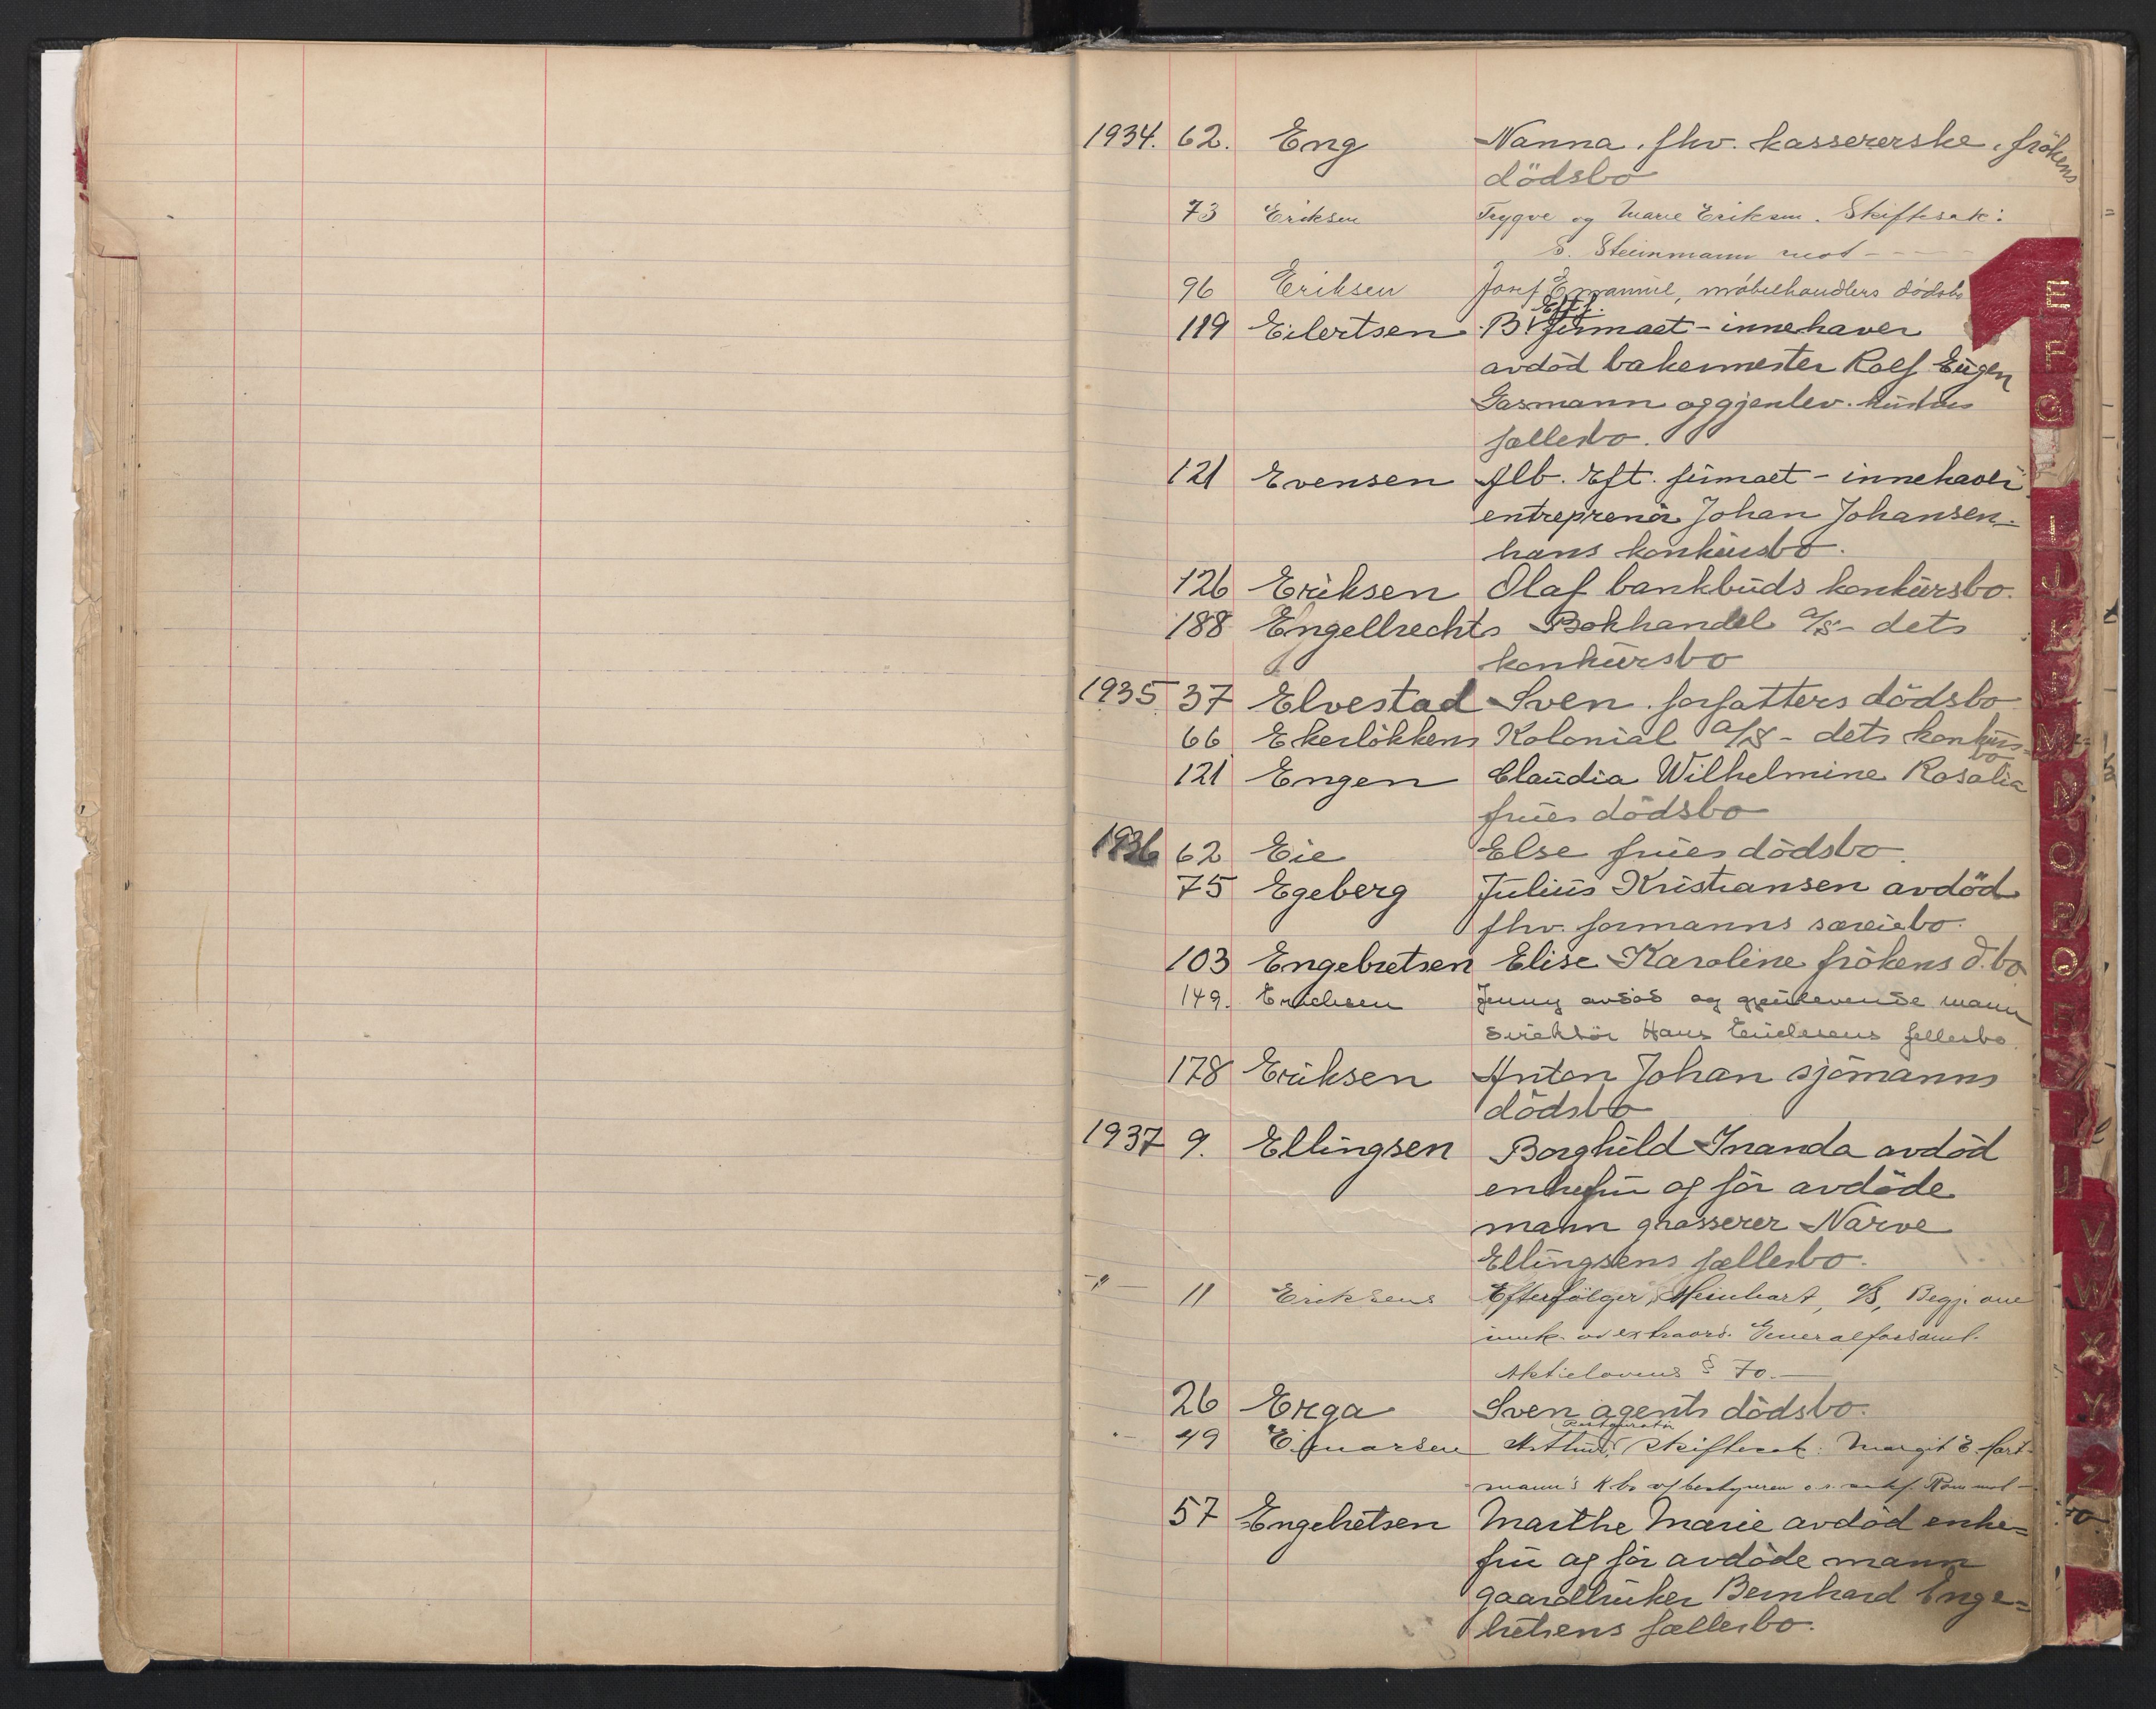 1934. 62. Eng Nanna. fhv. kassererske, frökens
dödsbo
73 Eriksen Trygve og Marie Eriksen. Skiftesak:
S. Steinmann mot - - -
96 Eriksen Josef Emanuel, möbelhandlers dödsbo
Eftf.
119 Eilertsen B. firmaet - innehaver
avdöd bakermester Rolf Eugen
Gasmann og gjenlev. hustrus
fællesbo.
121 Evensen Alb. Eft. firmaet - innehaver
entreprenör Johan Johansen -
hans konkursbo.
126 Eriksen Olaf bankbuds konkursbo.
188 Engelbrechts Bokhandel A/S - dets
konkursbo
1935 37 Elvestad Sven. forfatters dödsbo
66 Ekerlökkens Kolonial A/S - dets konkurs-
bo
121 Engen Claudia Wilhelmine Rosalia
frues dödsbo
1936 62 Eie Else frues dödsbo.
75 Egeberg Julius Kristiansen avdöd
fhv. formanns særeiebo.
103 Engebretsen Elise Karoline frökens d.bo
149. Jenny avdöd og gjenlevende mann
direktör Hans fellesbo.
178 Eriksen Anton Johan sjömanns
dödsbo
1937 9. Ellingsen Borghild Inanda avdöd
enkefru og för avdöde
mann grosserer Narve
Ellingsens fællesbo.
-"- 11 Eriksens Efterfölger, A/S, Begj. om
innk. av extraord. Generalforsaml.
Aktielovens § 70. -
26 Erga Sven agents dödsbo.
Restauratör
49 Arthur, Skiftesak: Margit E. Hart-
mann's K.bo v/ bestyreren o.r.sakf. -
57 Engebretsen Marthe Marie avdöd enke=
fru og för avdöde mann
gaardbruker Bernhard Enge=
bretsens fællesbo.
E
F
G
I
J
K
M
N
O
P
Q
V
W
X
Y
Z